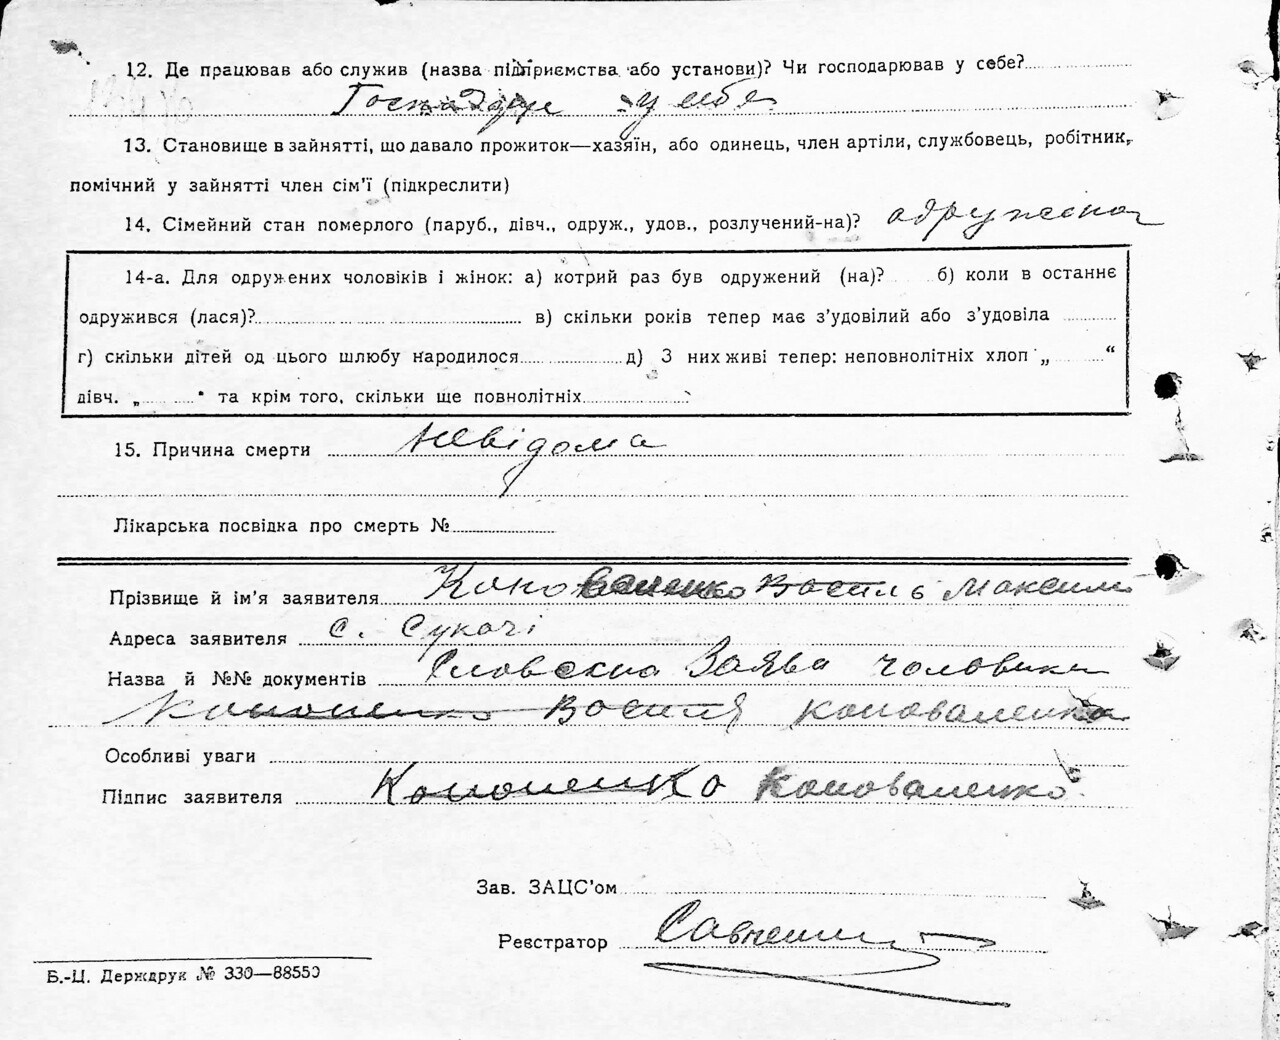 12. Де працював або служив (назва підприємства або установи)? Чи господарював у себе?
Господар у себе
13. Становище в зайнятті, що давало прожиток—хазяїн, або одинець, член артіли, службовець, робітник,
помічний у зайнятті член сім'ї (підкреслити)
14. Сімейний стан померлого (паруб., дівч., одруж., удов., розлучений-на)? одружена
14-а. Для одружених чоловіків і жінок: а) котрий раз був одружений (на)? б) коли в останнє
одружився (лася)? в) скільки років тепер має з'удовілий або з'удовіла
г) скільки дітей од цього шлюбу народилося д) З них живі тепер: неповнолітніх хлоп „ “
дівч. „ " та крім того, скільки ще повнолітніх
15. Причина смерти невідома
Лікарська посвідка про смерть №
Прізвище й ім'я заявителя Коноваленко Василь Максим
Адреса заявителя с. Сукачі
Назва й №№ документів Словесна Заява чоловіка
Кононенко Василя Коноваленка
Особливі уваги
Підпис заявителя Кононенко Коноваленко
Зав. ЗАЦС'ом
Реєстратор
Б.-Ц. Держдрук № 330—88550